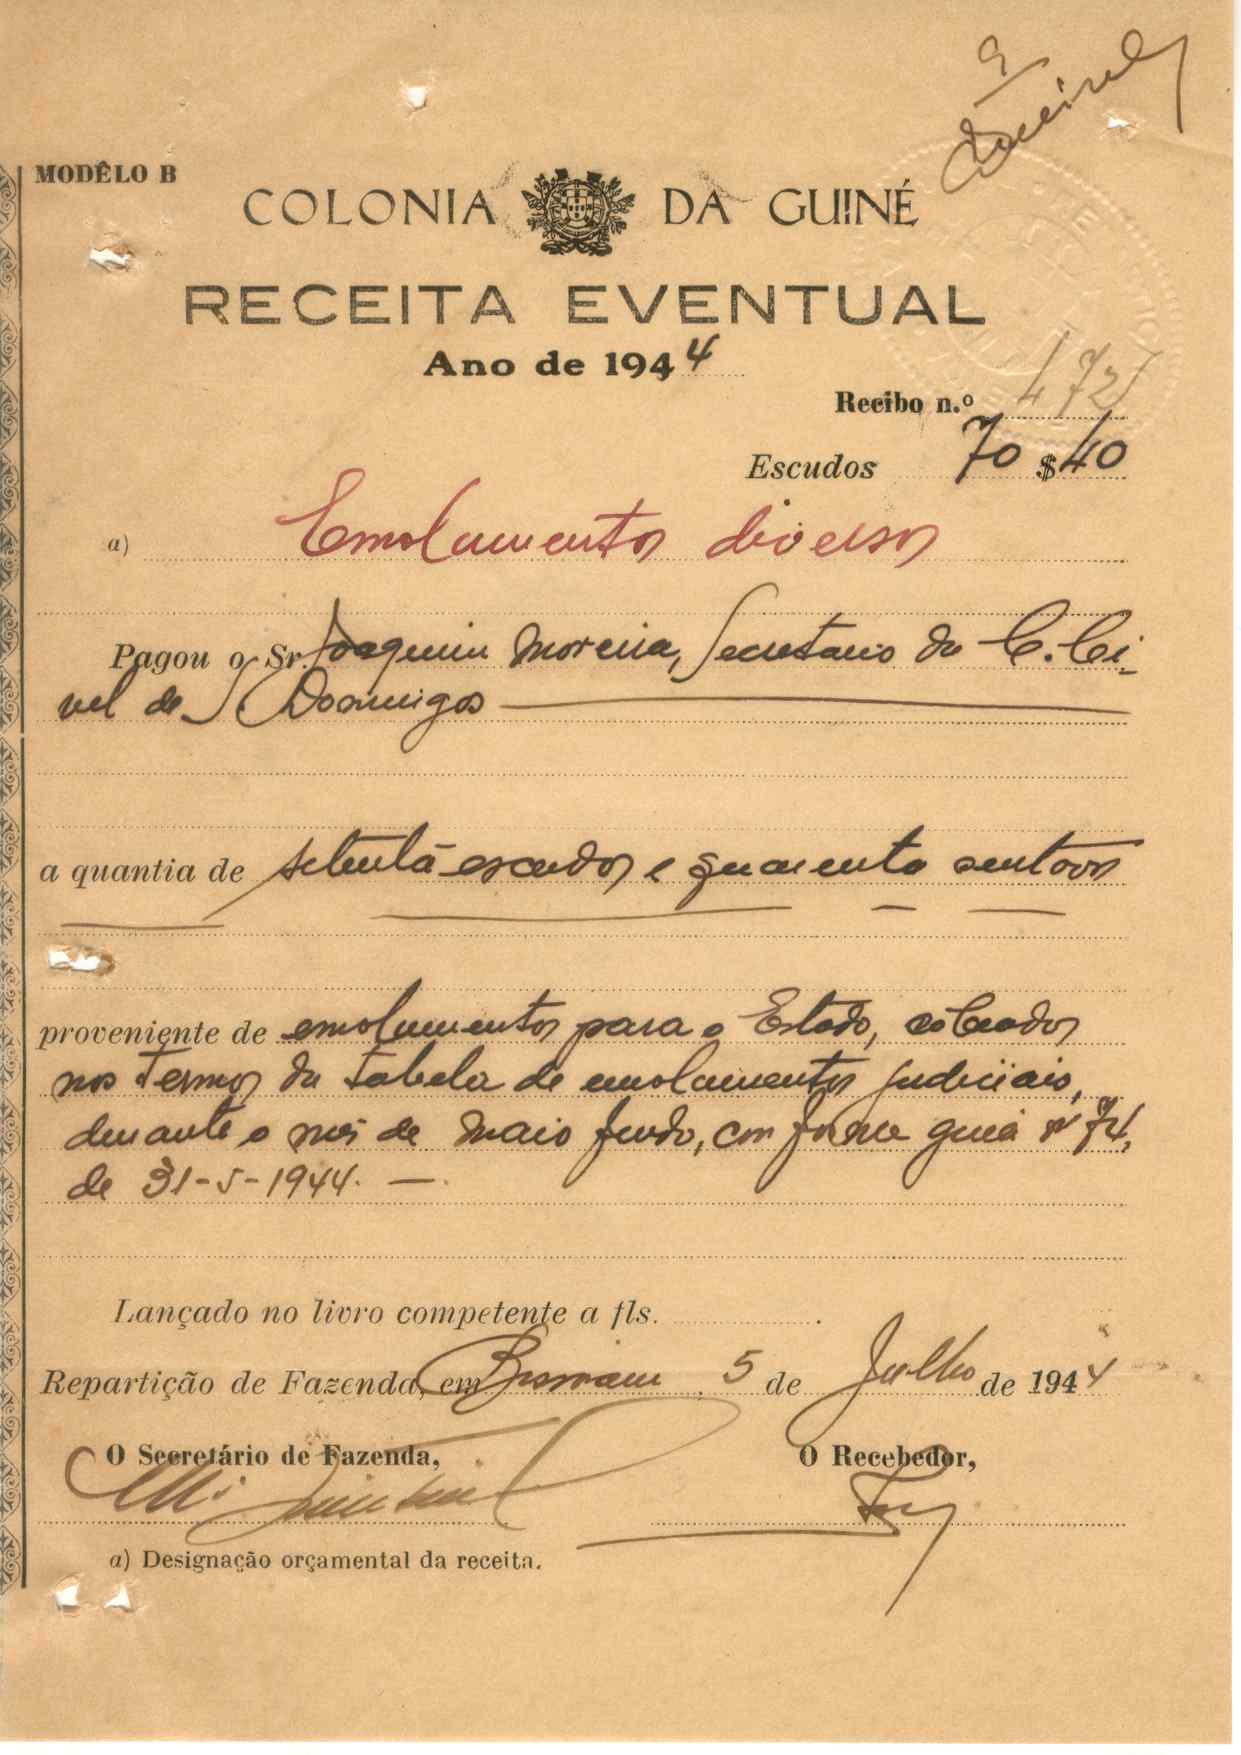 MODÊLO B
COLONIA DA GUINÉ
RECEITA EVENTUAL
Ano de 1944
Recibo n.º 472
Escudos 70 $ 40
a) Emolumentos diversos
Pagou o Sr. Joaquim Moreira, Secretario da C. Ci-
vel de S. Domingos
a quantia de setenta escudos e quarenta centavos
proveniente de emolumentos para o Estado, cobrados
nos termos da tabela de emolumentos judiciais,
durante o mês de Maio findo, conforme guia nº 74,
de 31-5-1944. —
Lançado no livro competente a fls. .
Repartição de Fazenda, em Bissau, 5 de Julho de 1944
O Secretário de Fazenda,
O Recebedor,
a) Designação orçamental da receita.